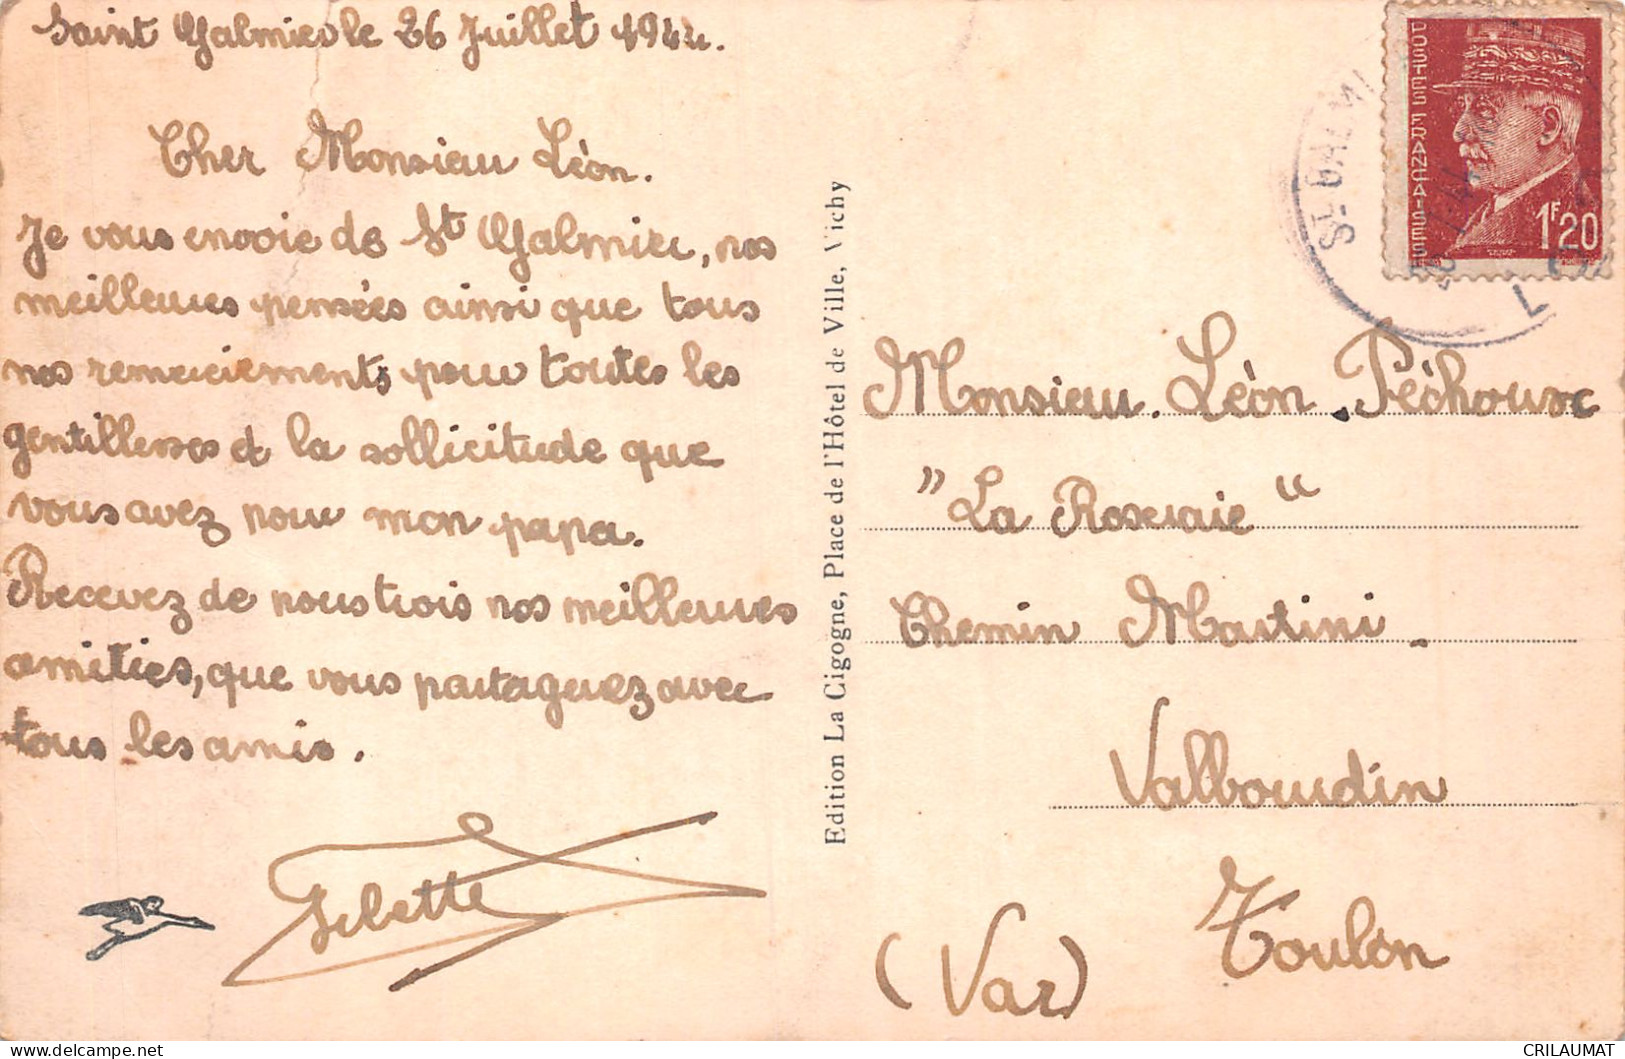 Saint Galmier le 26 Juillet 1944.
Cher Monsieur Léon.
Je vous envoie de St Galmier, nos
meilleures pensées ainsi que tous
nos remerciements pour toutes les
gentillesses et la sollicitude que
vous avez pour mon papa.
Recevez de nous trois nos meilleures
amitiés, que vous partagerez avec
tous les amis.
Gilette
Edition La Cigogne, Place de l'Hôtel de Ville, Vichy
POSTES FRANÇAISES
1F20
ST GALMI
Monsieur Léon Péchoux
"La Roseraie"
Chemin Martini.
Valbourdin
Toulon
(Var)
CRILAUMAT